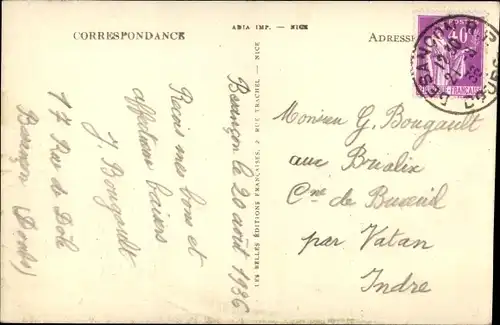 ADIA IMP. — NICE
CORRESPONDANCE
Besançon le 20 août 1936
Recois mes bons et
affectueux baisers
J. Bougault
17 Rue de Dôle
Besançon (Doubs)
LES BELLES ÉDITIONS FRANÇAISES, 2 RUE TRACHEL, — NICE
ADRESSE
POSTES
40c
FRANÇAISE
BESANÇON
DOUBS
Monsieur G. Bougault
aux Brialix
Cne de Buxeuil
par Vatan
Indre